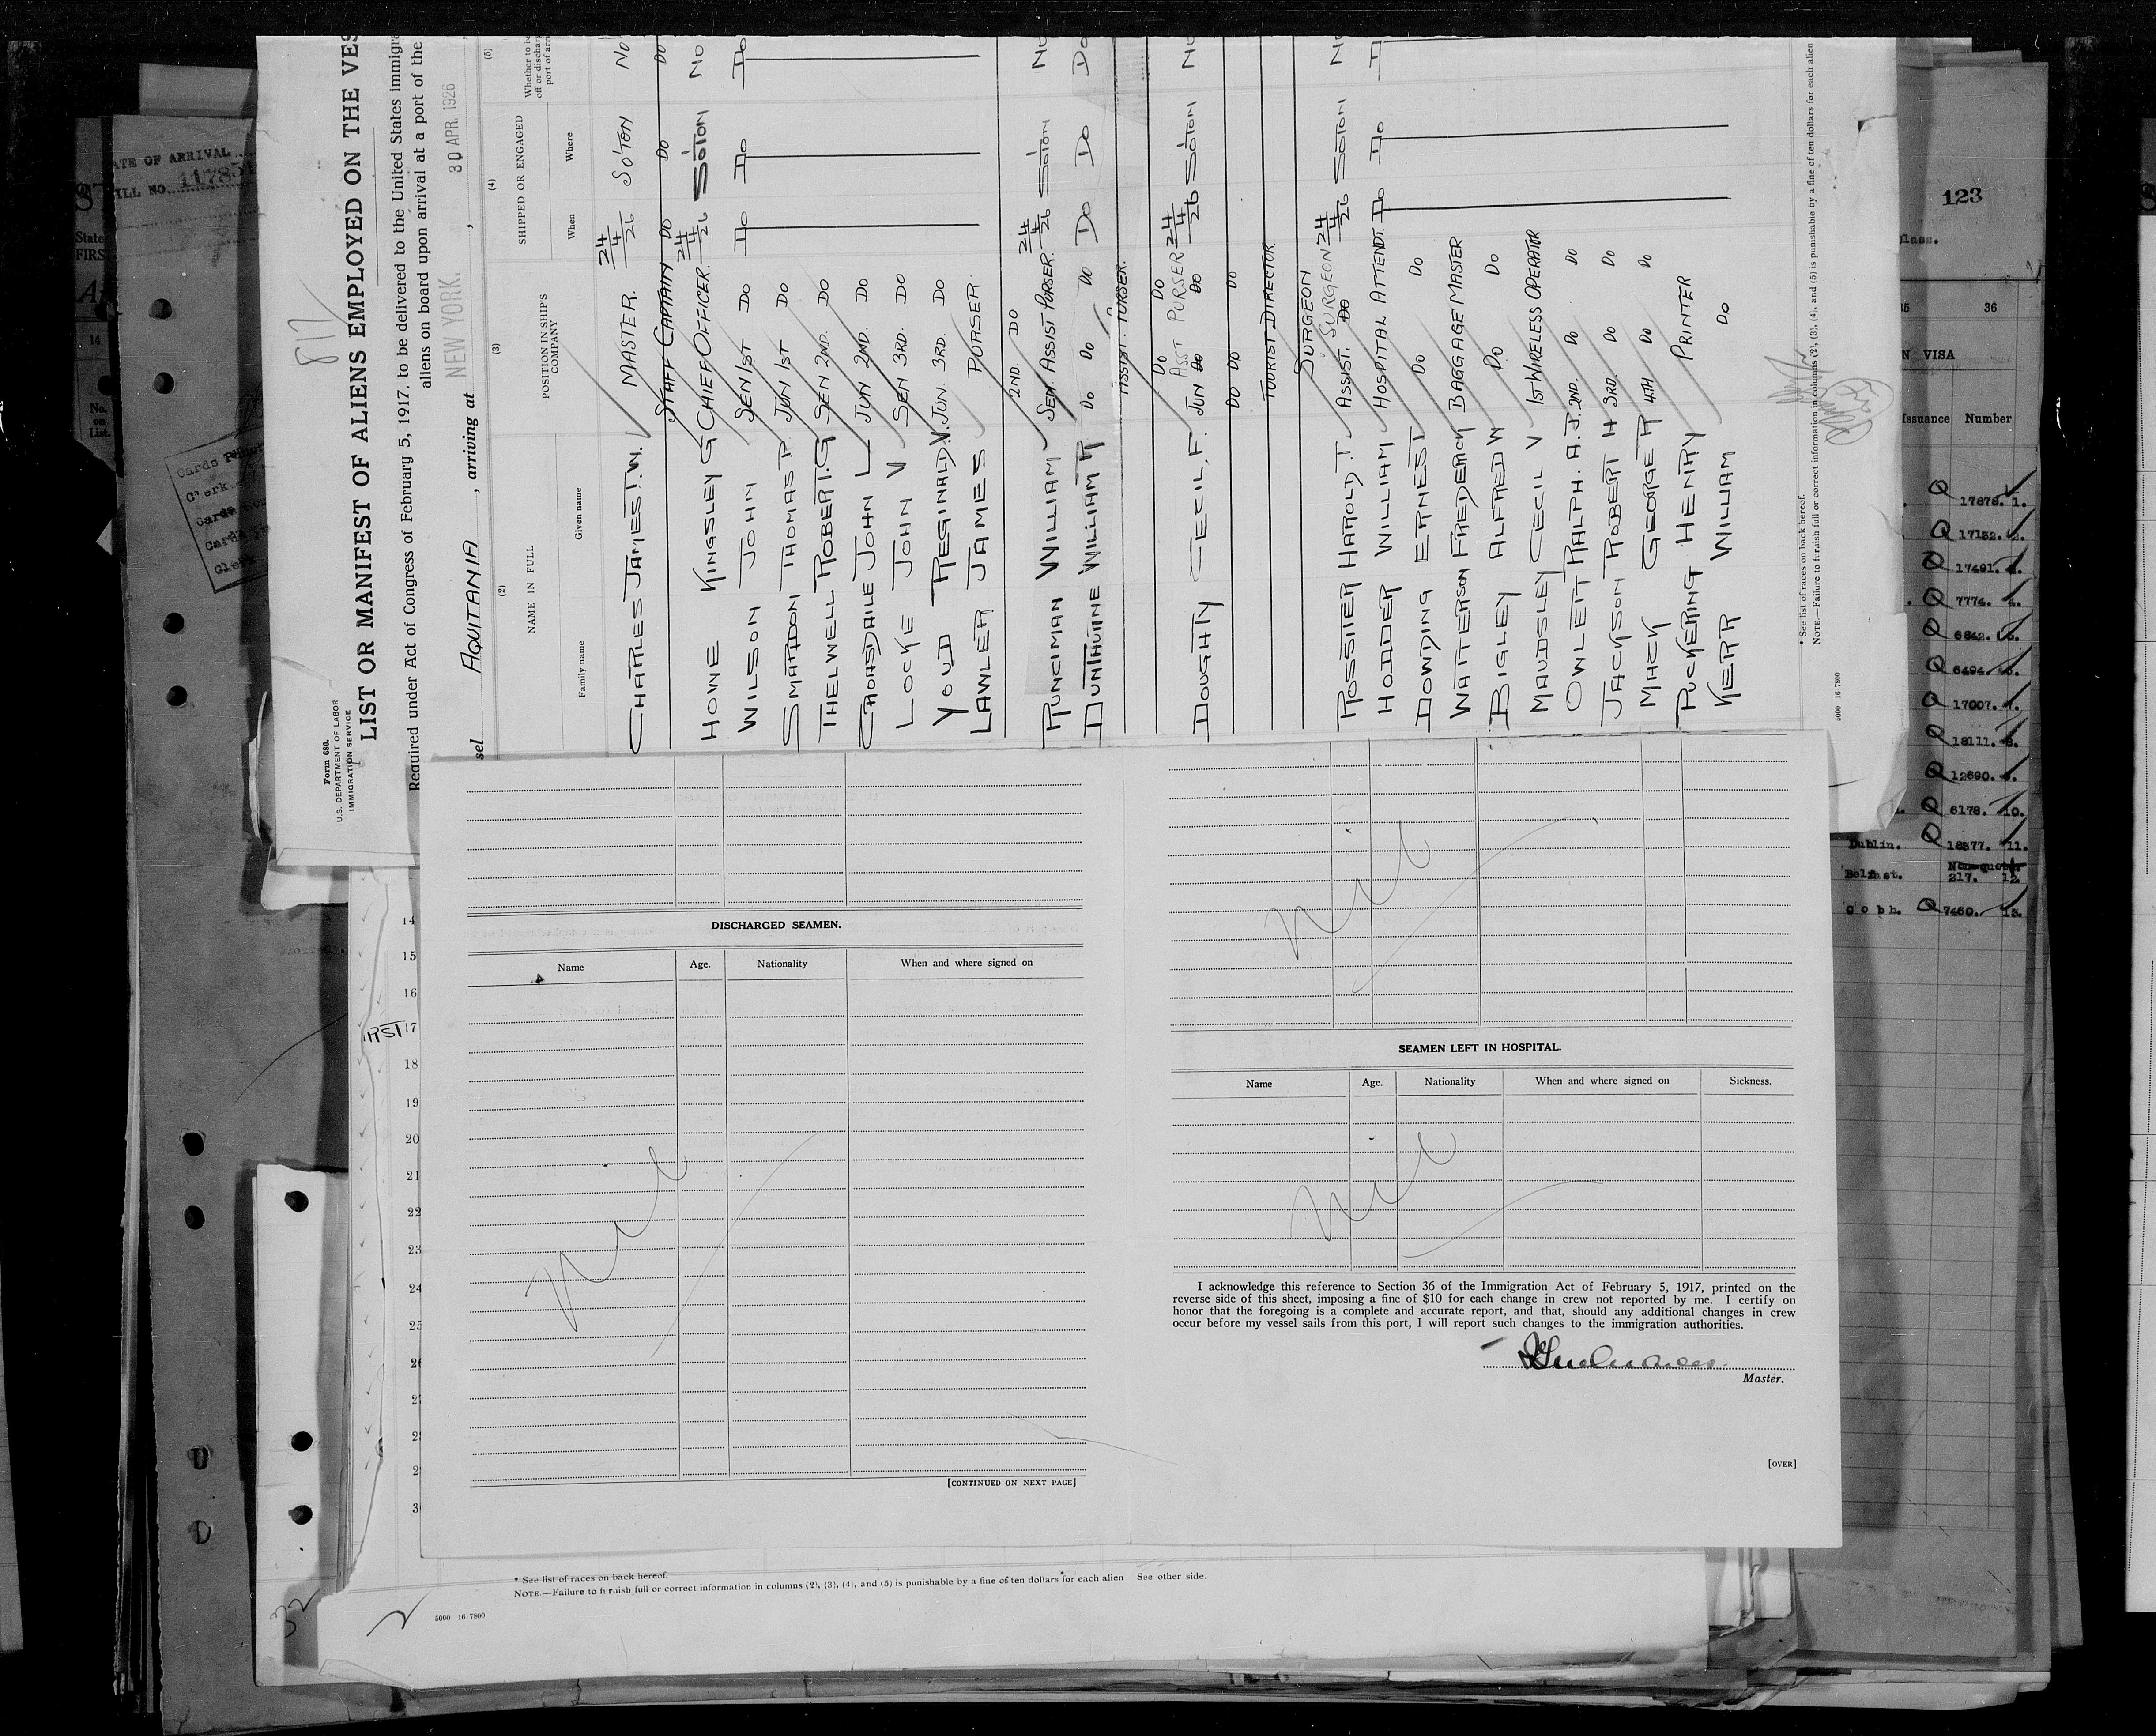 Form 680.
U.S. DEPARTMENT OF LABOR
IMMIGRATION SERVICE
817
LIST OR MANIFEST OF ALIENS EMPLOYED ON THE VES
Required under Act of Congress of February 5, 1917, to be delivered to the United States immigra
aliens on board upon arrival at a port of the
sel AQUITANIA, arriving at NEW YORK. , 30 APR. 1926,
(2) (3) (4) (5)
NAME IN FULL POSITION IN SHIP'S COMPANY SHIPPED OR ENGAGED Whether to be
off or dischar
port of arri
Family name Given name When Where
CHARLES JAMES T.W. MASTER. 24/4/26 SO'TON NO
STAFF CAPTAIN DO DO DO
HOWE KINGSLEY G CHIEF OFFICER. 24/4/26 SO'TON NO
WILSON JOHN SEN 1ST DO DO DO DO
SMARDON THOMAS P. JUN 1ST DO
THELWELL ROBERT.G SEN 2ND. DO
CROASDAILE JOHN L JUN 2ND. DO
LOCKE JOHN V SEN 3RD. DO
YOUD REGINALD.V. JUN. 3RD. DO
LAWLER JAMES PURSER.
2ND. DO
RUNCIMAN WILLIAM SEN. ASSIST PURSER. 24/4/26 SO'TON NO
DUNTHURNE WILLIAM R DO DO DO DO DO DO
ASSIST. PURSER.
DO DO
DOUGHTY CECIL, F. JUN DO DO ASST PURSER 24/4/26 SO'TON NO
DO DO DO
TOURIST DIRECTOR
SURGEON
ROSSITER HAROLD T. ASSIST. DO SURGEON 24/4/26 SO'TON NO
HODDER WILLIAM HOSPITAL ATTENDT. DO DO DO
DOWDING ERNEST DO DO
WATTERSON FREDERICK BAGGAGE MASTER
BIGLEY ALFRED W DO DO
MAUDSLEY CECIL V 1ST WIRELESS OPERATOR
OWLETT RALPH. A.J. 2ND. DO DO
JACKSON ROBERT H 3RD. DO DO
MACK GEORGE R 4TH DO DO
PUCKERING HENRY PRINTER
KERR WILLIAM DO
* See list of races on back hereof.
NOTE.—Failure to furnish full or correct information in columns (2), (3), (4), and (5) is punishable by a fine of ten dollars for each alien
5000 16-7800
ATE OF ARRIVAL
ILL NO. 11785
State
FIRS
14
No.
on
List.
Cards
Clerk
Cards
Cards
Clerk
123
class.
35 36
N VISA
Issuance Number
Q 17878. 1.
Q 17152. 2.
Q 17491. 3.
Q 7774. 4.
Q 6842. 5.
Q 6494. 6.
Q 17007. 7.
Q 18111. 8.
Q 12690. 9.
Q 6178. 10.
Dublin. Q 18577. 11.
Belfast. Non-quota
217. 12.
Cobh. Q 7460. 13.
DISCHARGED SEAMEN.
Name Age. Nationality When and where signed on
Nil
[CONTINUED ON NEXT PAGE]
Nil
SEAMEN LEFT IN HOSPITAL.
Name Age. Nationality When and where signed on Sickness.
Nil
I acknowledge this reference to Section 36 of the Immigration Act of February 5, 1917, printed on the
reverse side of this sheet, imposing a fine of $10 for each change in crew not reported by me. I certify on
honor that the foregoing is a complete and accurate report, and that, should any additional changes in crew
occur before my vessel sails from this port, I will report such changes to the immigration authorities.
Master.
[OVER]
14
15
16
RST 17
18
19
20
21
22
23
24
25
26
2
2
2
3
* See list of races on back hereof.
NOTE.—Failure to furnish full or correct information in columns (2), (3), (4), and (5) is punishable by a fine of ten dollars for each alien See other side.
5000 16-7800
32